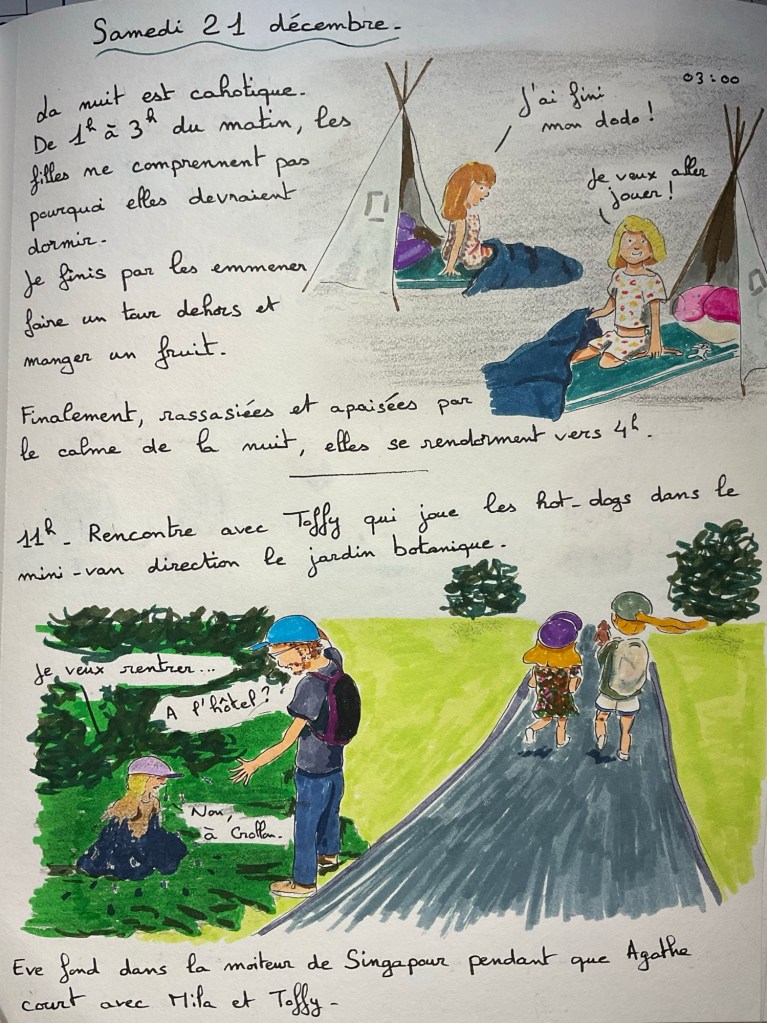 Samedi 21 décembre.
La nuit est cahotique.
De 1h à 3h du matin, les
filles ne comprennent pas
pourquoi elles devraient
dormir.
Je finis par les emmener
faire un tour dehors et
manger un fruit.
03:00
J'ai fini
mon dodo !
Je veux aller
jouer !
Finalement, rassasiées et apaisées par
le calme de la nuit, elles se rendorment vers 4h.
11h - Rencontre avec Toffy qui joue les hot-dogs dans le
mini-van direction le jardin botanique.
Je veux rentrer...
A l'hôtel ?
Non,
à Crollan.
Eve fond dans la moiteur de Singapour pendant que Agathe
court avec Mila et Toffy -